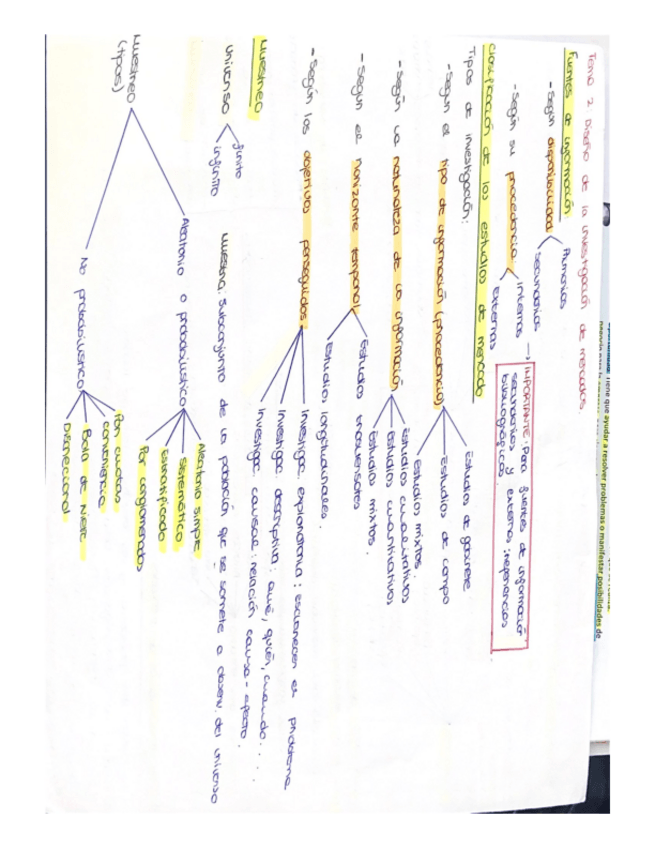 Tema 2. Diseño de la investigación de mercados.
Fuentes de información
- Según disponibilidad
Primarias
secundarias
- Según su procedencia
internas
externas
→ IMPORTANTE: Para fuentes de información
secundarias y externas: referencias
bibliográficas.
Clasificación de los estudios de mercado
Tipos de investigación:
- Según el tipo de información (procedencia)
Estudios de gabinete
Estudios de campo
Estudios mixtos.
- Según la naturaleza de la información
Estudios cualitativos
Estudios cuantitativos
Estudios mixtos.
- Según el horizonte temporal
Estudios transversales
Estudios longitudinales.
- Según los objetivos perseguidos
Investigac. exploratoria: esclarecer el problema
Investigac. descriptiva: qué, quién, cuando....
Investigac. causal: relación causa-efecto.
Muestreo
universo
finito
infinito
Muestra: subconjunto de la población que se somete a observ. del universo
Muestreo
(tipos)
Aleatorio o probabilístico
Aleatorio simple
Sistemático
Estratificado
Por conglomerados
No probabilístico
Por cuotas
conveniencia
Bola de nieve
Discrecional
Tiene que ayudar a resolver problemas o manifestar posibilidades de